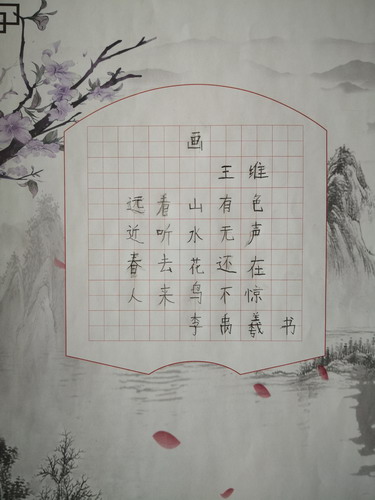 画
王维
远看山有色
近听水无声
春去花还在
人来鸟不惊
李禹羲 书